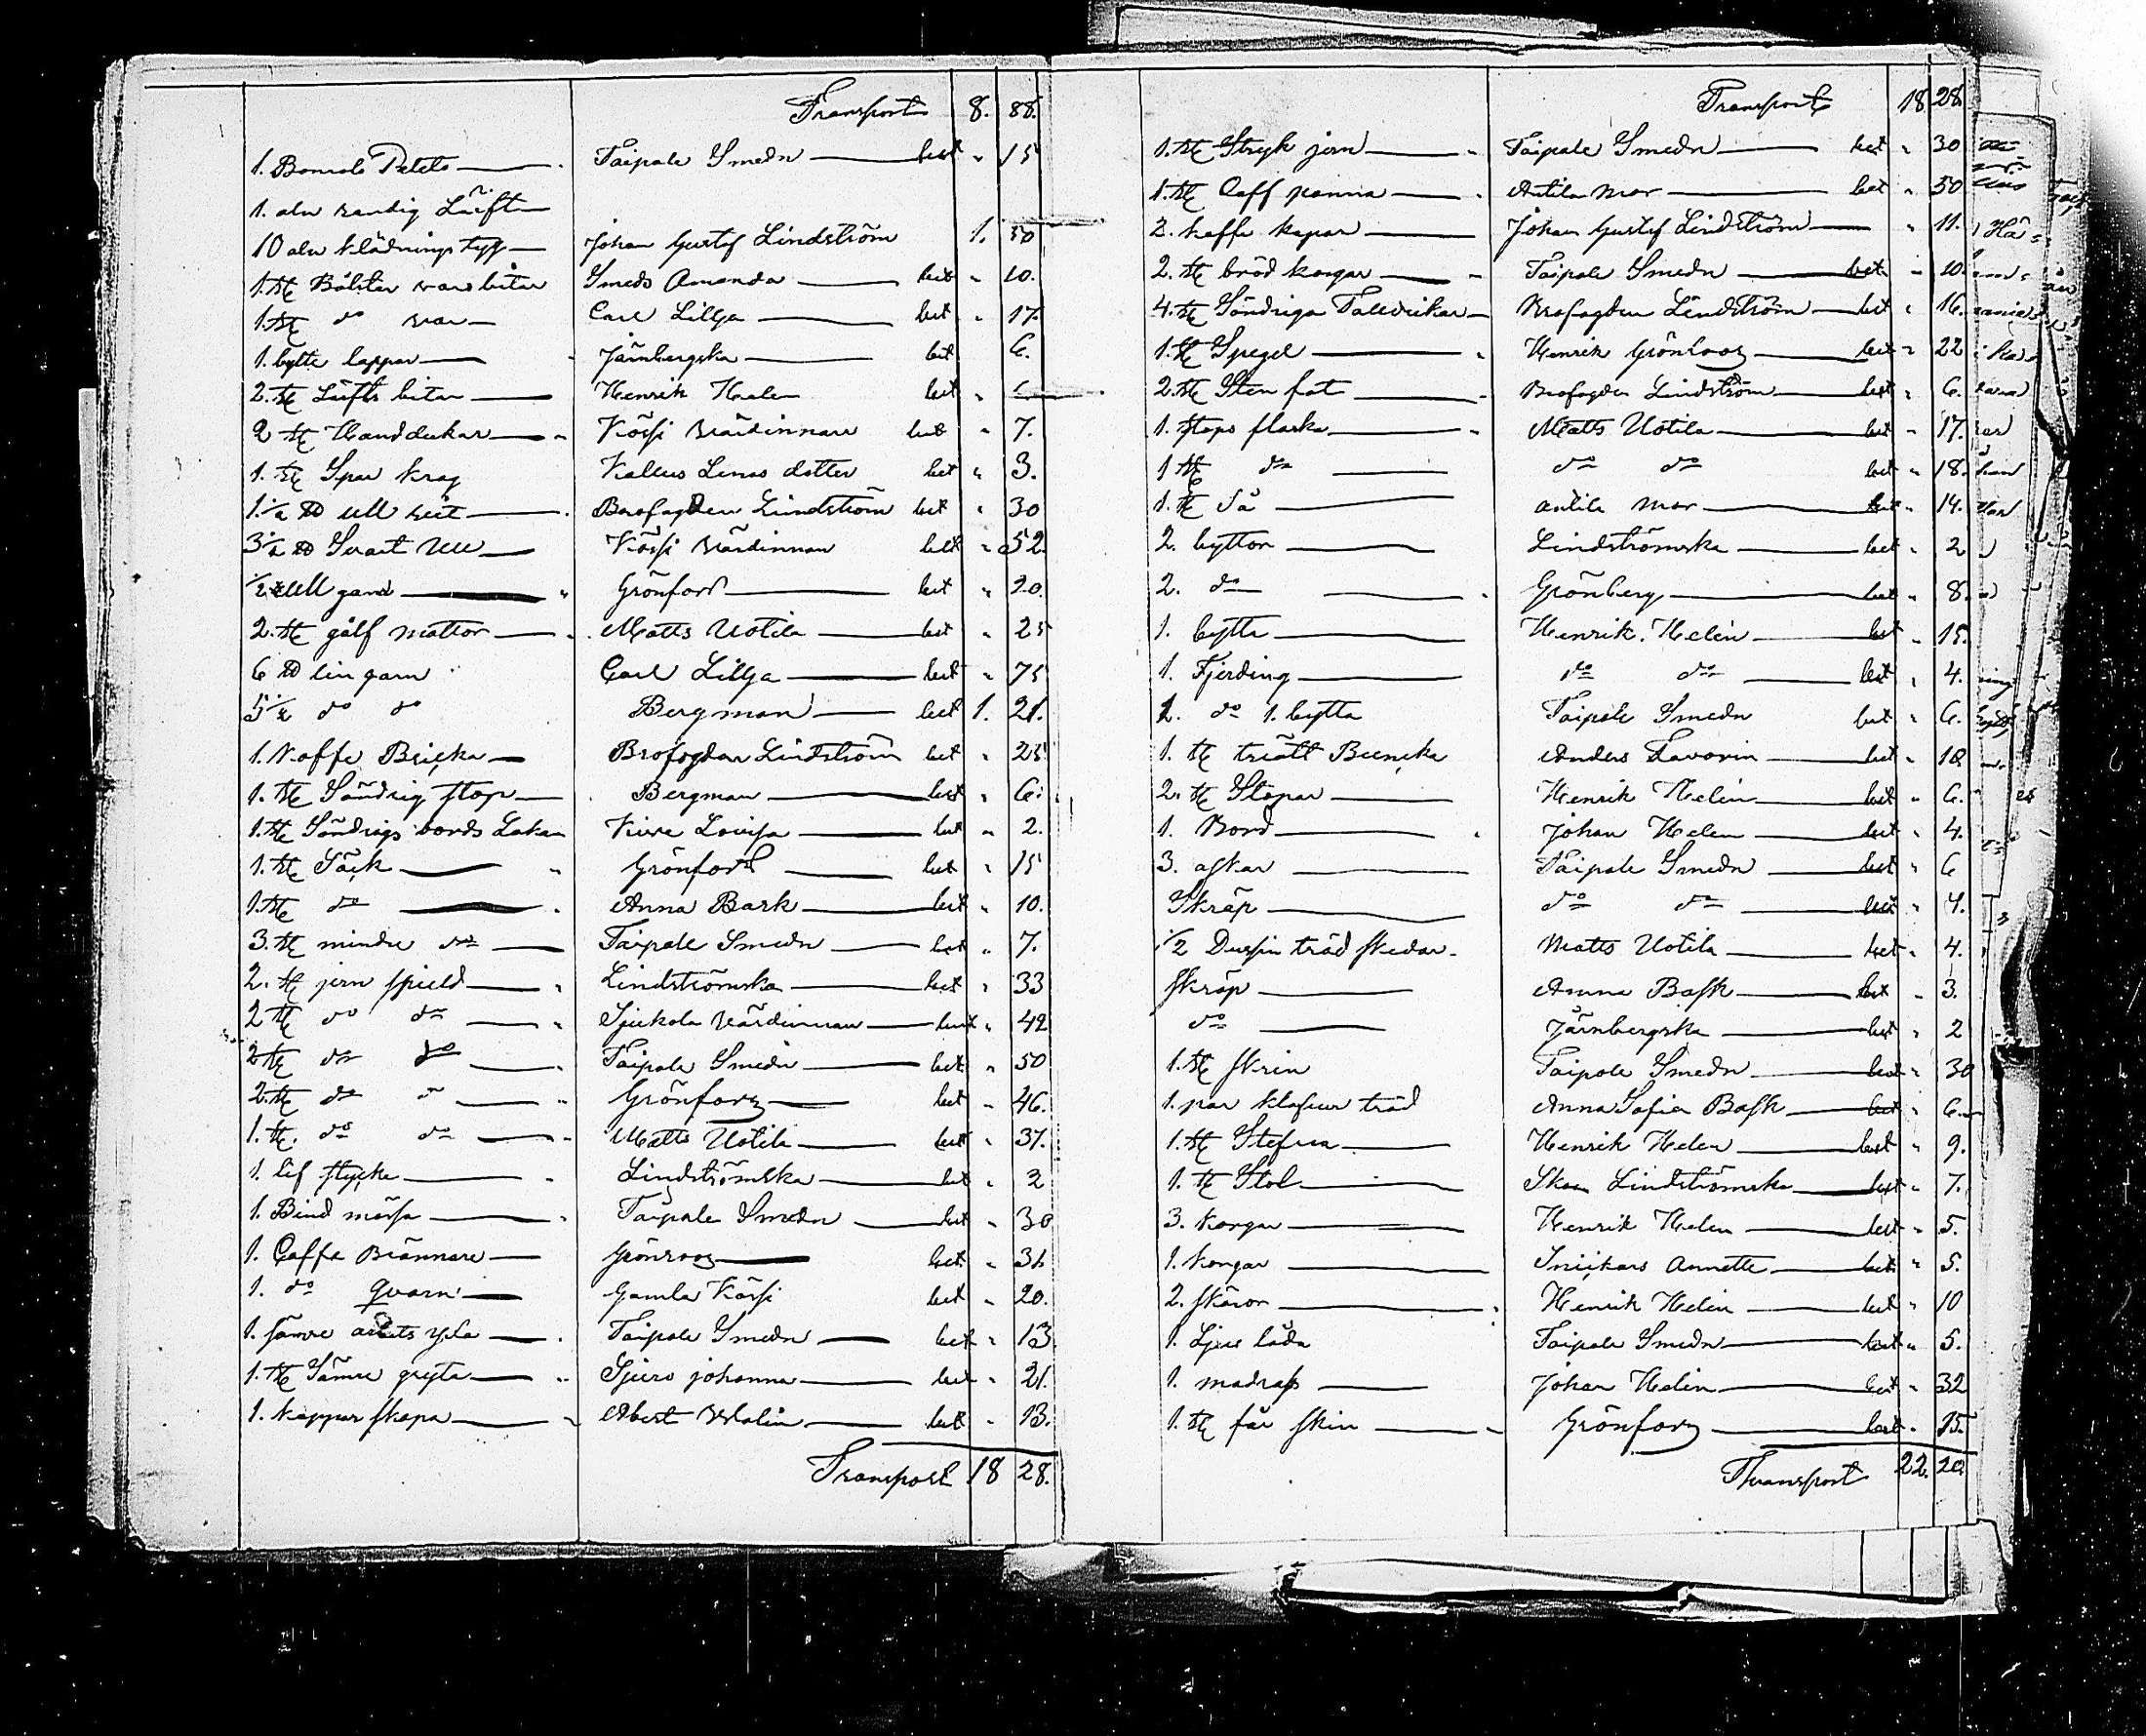 Transport 8. 88.
1. Bomols Paleto Taipale Smedn bet " 15
1. aln randig Läift
10 aln klädnings tyg Johan Gustaf Lindström 1. 50
1. st Bolster vars bitar Smeds Amanda bet " 10.
1. st do var Carl Lillja bet " 17.
1. bytte lappar Järnbergska bet 6.
2. st Läifts bitar Henrik Helen bet "
2 st Handdukar Kössi Värdinnan bet " 7.
1. st Spar krag Kallus Lenas dotter bet " 3.
1 1/2 ℔ ull Brofogden Lindström bet " 30
3 1/2 ℔ Svart Ull Kössi Värdinnan bet " 52.
1/2 ull garn Grönfors bet " 20.
2. st gålf mattor Matts Uotila bet " 25
6 ℔ lin garn Carl Lillja bet " 75
5 1/2 do do Bergman bet 1. 21.
1. Kaffe Bricka Brofogden Lindström bet " 25
1. st Söndrig stop Bergman bet " 6.
1. st Söndrigs bords Lakan Lovisa bet " 2.
1. st Säck Grönfors bet " 15
1. st do Anna Bask bet " 10.
3. st mindre do Taipale Smedn bet " 7.
2. st jern spield Lindströmska bet " 33
2 st do do Sjukola Värdinnan bet " 42
2 st do do Taipale Smedn bet " 50
2. st do do Grönfors bet " 46.
1. st. do do Matts Uotila bet " 37.
1. lif stycke Lindströmska bet " 2
1. Bind mössa Taipale Smedn bet " 30
1. Caffe Brännare Grönroos bet " 31.
1. do Qvarn Gamla Kössi bet " 20.
1. sämre Taipale Smedn bet " 13.
1. st Sämre gryta Sjuro johanna bet " 21.
1. koppar skopa Abert Malin bet " 13.
Transport 18 28.
Transport 18 28
1. st Stryk jern Taipale Smedn bet " 30
1. st Caff panna Antila mor bet " 50
2. kaffe kopar Johan Gustaf Lindström " 11.
2. st bröd korgar Taipale Smedn bet " 10.
4. st Söndriga Tallrikar Brofogden Lindström bet " 16.
1. st Spegel Henrik Grönroos bet " 22
2. st Sten fat Brofogden Lindström bet " 6.
1. stops flaska Matts Uotila bet " 17.
1 st do do do bet " 18.
1. st Så antila mor bet " 14.
2. byttor Lindströmska bet " 2
2. do Grönberg bet " 8.
1. bytta Henrik Helin bet " 15.
1. Fjerding do do bet " 4.
1. do 1. bytta Taipale Smedn bet " 6.
1. st trätt Buncka Anders Favorin bet " 10
2. st Stopar Henrik Helin bet " 6.
1. Bord Johan Helen bet " 4.
3. askar Taipale Smedn bet " 6
Skräp do do bet " 4.
1/2 Dussin träd skedar. Matts Uotila bet " 4.
skräp Anna Bask bet " 3.
do Järnbergska bet " 2
1. st skrin Taipale Smedn bet " 30
1. par träd Anna Sofia Bask bet " 6.
1. st Stefva Henrik Helen bet " 9.
1. st Stol Lindströmska bet " 7.
3. korgar Henrik Helen bet " 5.
1. korgar Snickars Annette bet " 5.
2. skäror Henrik Helin bet " 10
1. Ljus låda Taipale Smedn bet " 5.
1. madrass Johan Helin bet " 32
1. st får skin Grönfors bet " 15.
Transport 22. 20